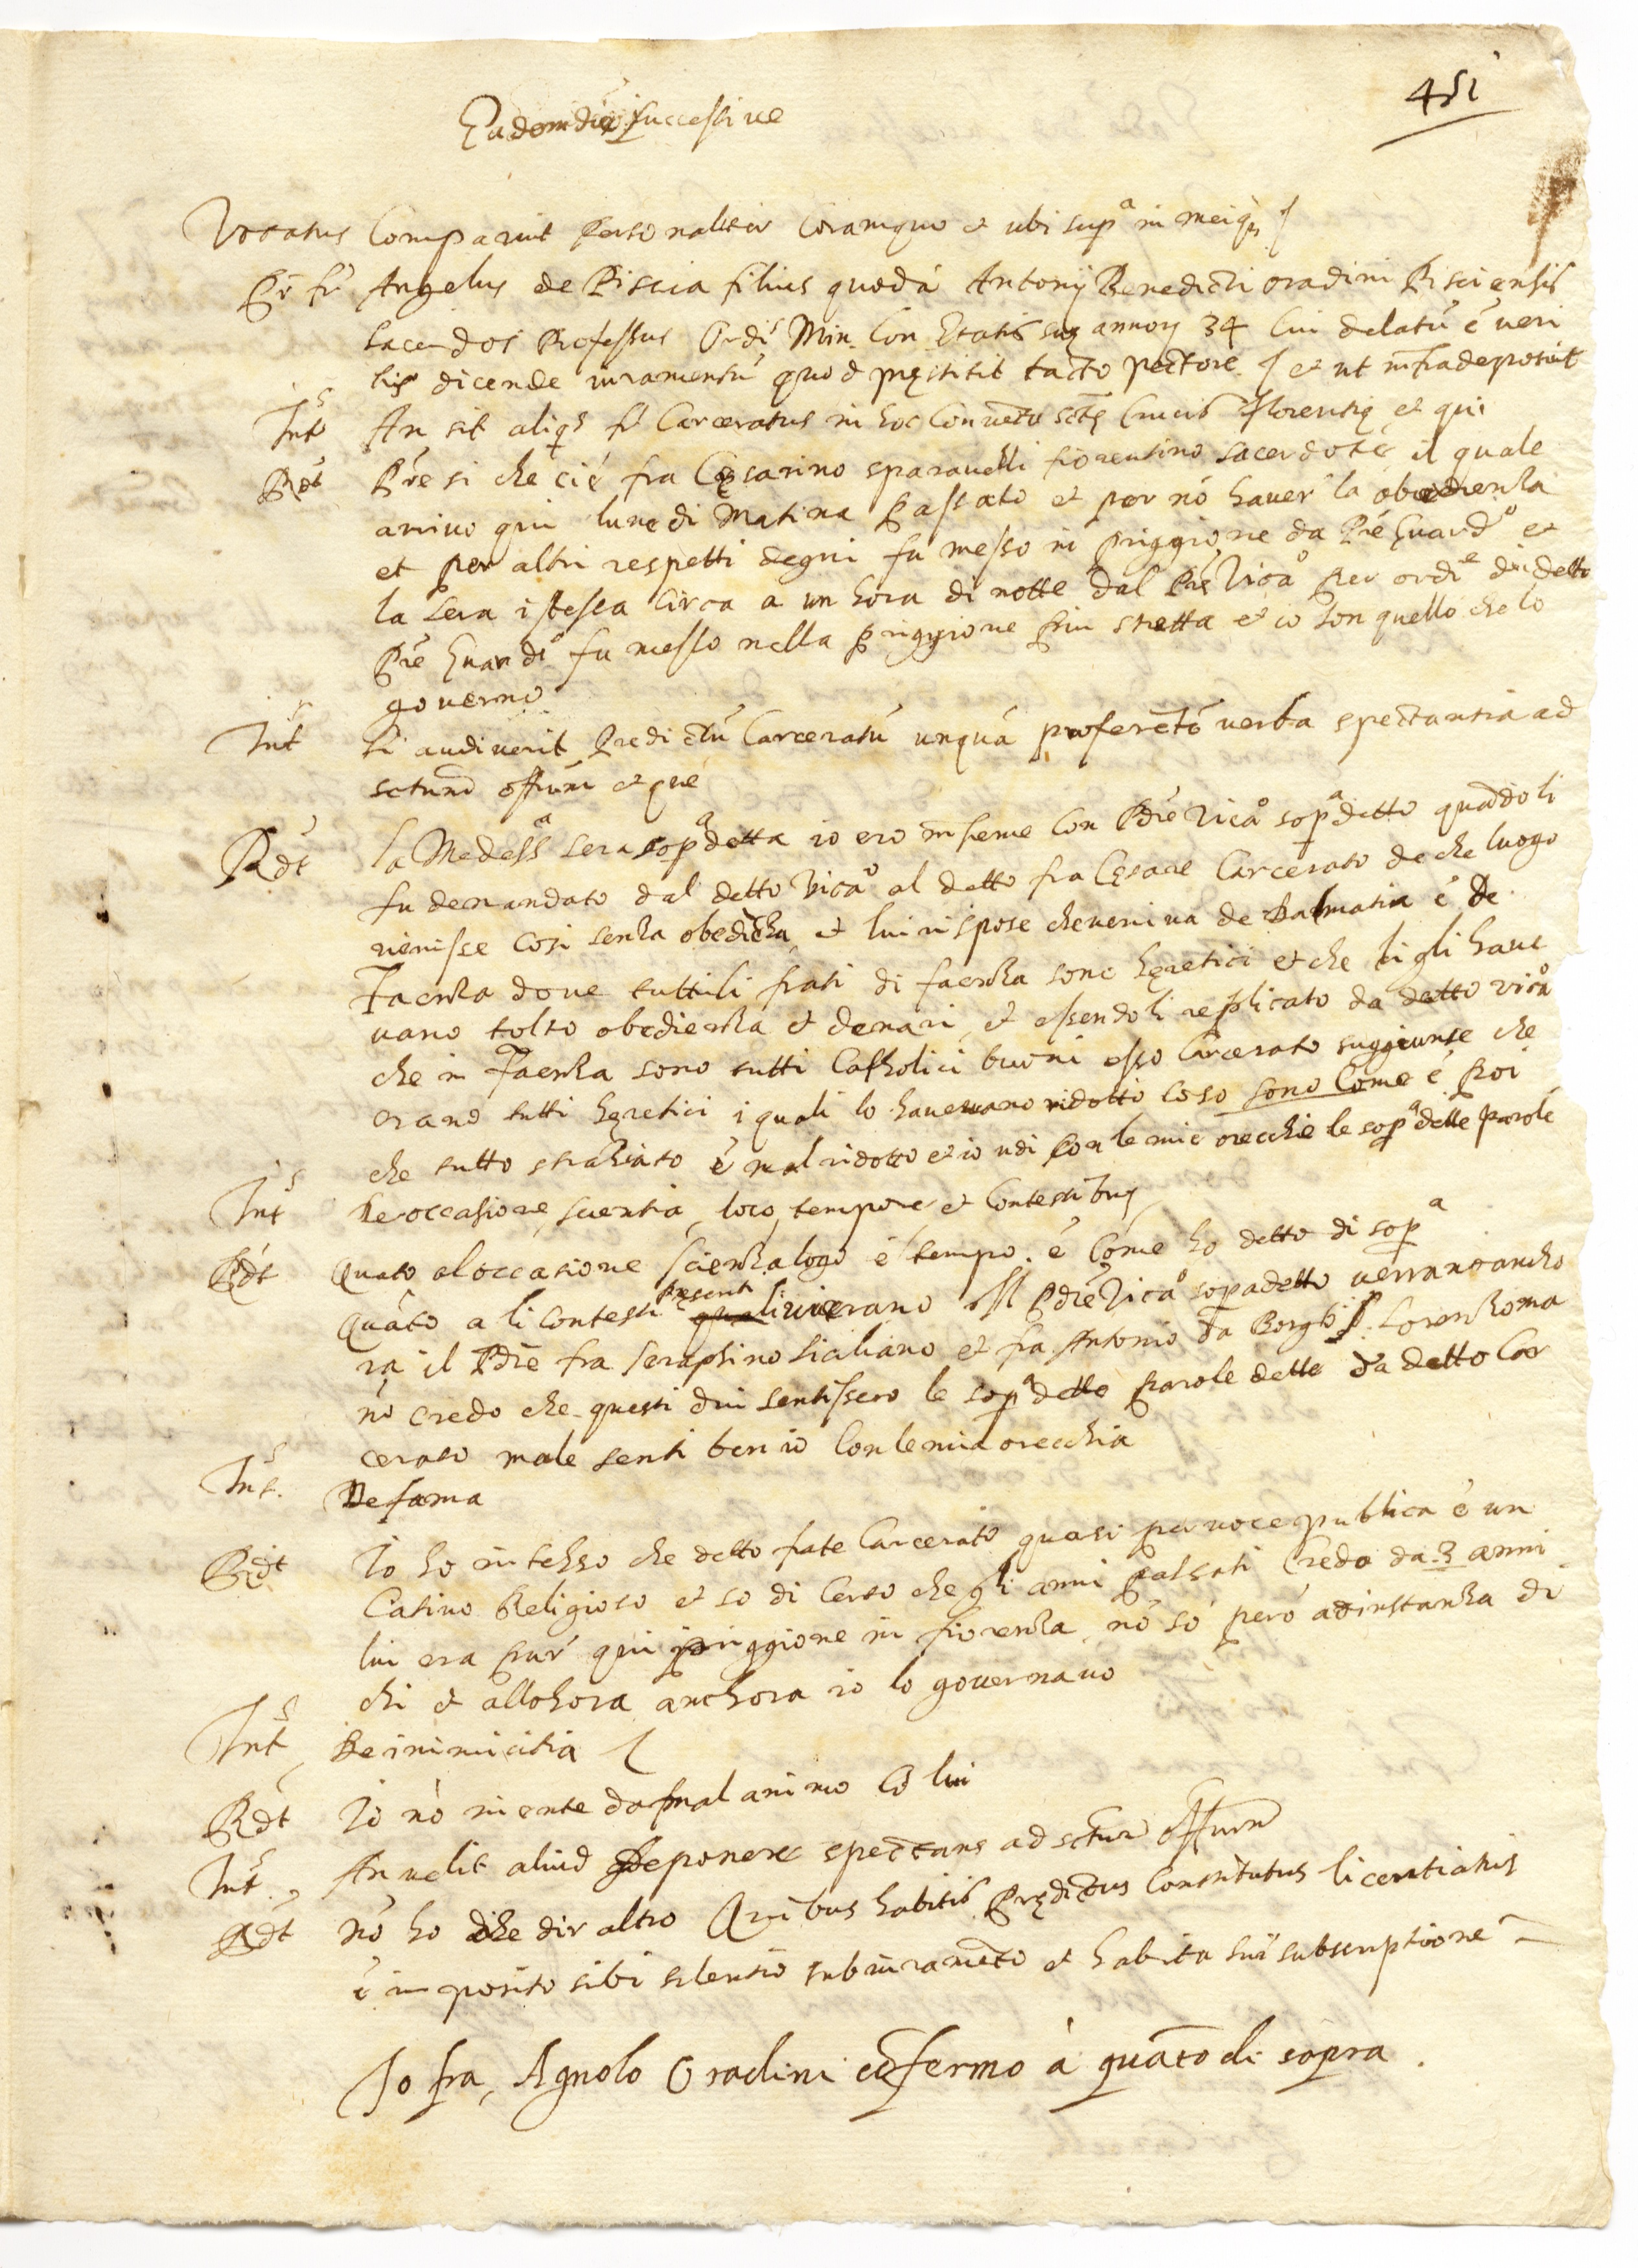 451
Eadem die successive
Vocatus Comparuit Personaliter Coramquo et ubi supª in meiq
Pr fr Angelus de Piscia filius quodā Antonij Benedicti oradini Pisciensis
sacerdos Professus Ordi Min Con Etatis suę annorū 34 Cui delatū é veri
tis dicende iuramentū quod pręstitit tacto pectore et ut infra deposuit
Int An sit aliqs fr Carceratus in hoc Convētu sctę Crucis Florentię et qui
Rdt Pre si che cié fra Cęsarino sparavelli fiorentino sacerdote il quale
arrivo qui lunedi Matina passato et per nō haver la obedienza
et per altri respetti degni fu messo in priggione da Pre Guardº et
la sera istessa circa a un hora di notte dal Pre Vicº per ordie di detto
Pre Guardº fu messo nella priggione piu stretta et io son quello che lo
governo
Int si audiverit Predictū Carceratū unquā proferētē verba spectantia ad
sctum offium et que
Rdt la Medessª sera sopªdetta io ero insieme con Pdre Vicº sopªdetto quādo li
fu demandato dal detto Vicº al detto fra Cęsare Carcerato de che luogo
venisse cosi senza obediēza et lui rispose che veniva de Dalmatia é De
Faenza dove tutti li frati di faenza sono hęretici et che li gli have
vano tolto obedienza et denari, et essendoli replicato da detto vicº
che in Faenza sono tutti Catholici buoni esso Carcerato suggiunse che
erano tutti hęretici i quali lo havevano ridotto coso sono Come é poi
che tutto stratiato é mal ridotto et io udi con le mie orecchie le sopªdette parole
Int De occasione, scientia, loco, tempore et Contestibus
Rdt Quāto al occasione scienza logo é tempo é Come ho detto di sopª
Quāto a li contesti pręsenti quali vi erano il Pdre Vicº sopradetto verranò ancho
ra il Pdre fra seraphino siciliano et fra Antonio da Borgo S. Lorenzo ma
nō credo che questi dui sentissero le sopªdette parole dette da detto Car
cerato ma le senti ben io Con le mia orecchia
Int. De fama
Rdt Io ho inteso che detto frate Carcerato quasi per voce publica é un
Cativo Religioso et so di Certo che gli anni passati Credo da 3 anni
lui era pur qui priggione in fiorenza nō so peró ad instanza di
chi et allohora anchora io lo governavo
Int De inimicitia
Rdt Io nō niente da mal animo Cō lui
Int. An velit aliud deponere spectans ad sctum offium
Rdt Nō ho che dir altro Quibus habitis prędictus Constitutus licentiatus
é imposito sibi silentio sub iuramēto et habita sua subscriptione
Io fra Agnolo Oradini cōfermo à quāto di sopra.